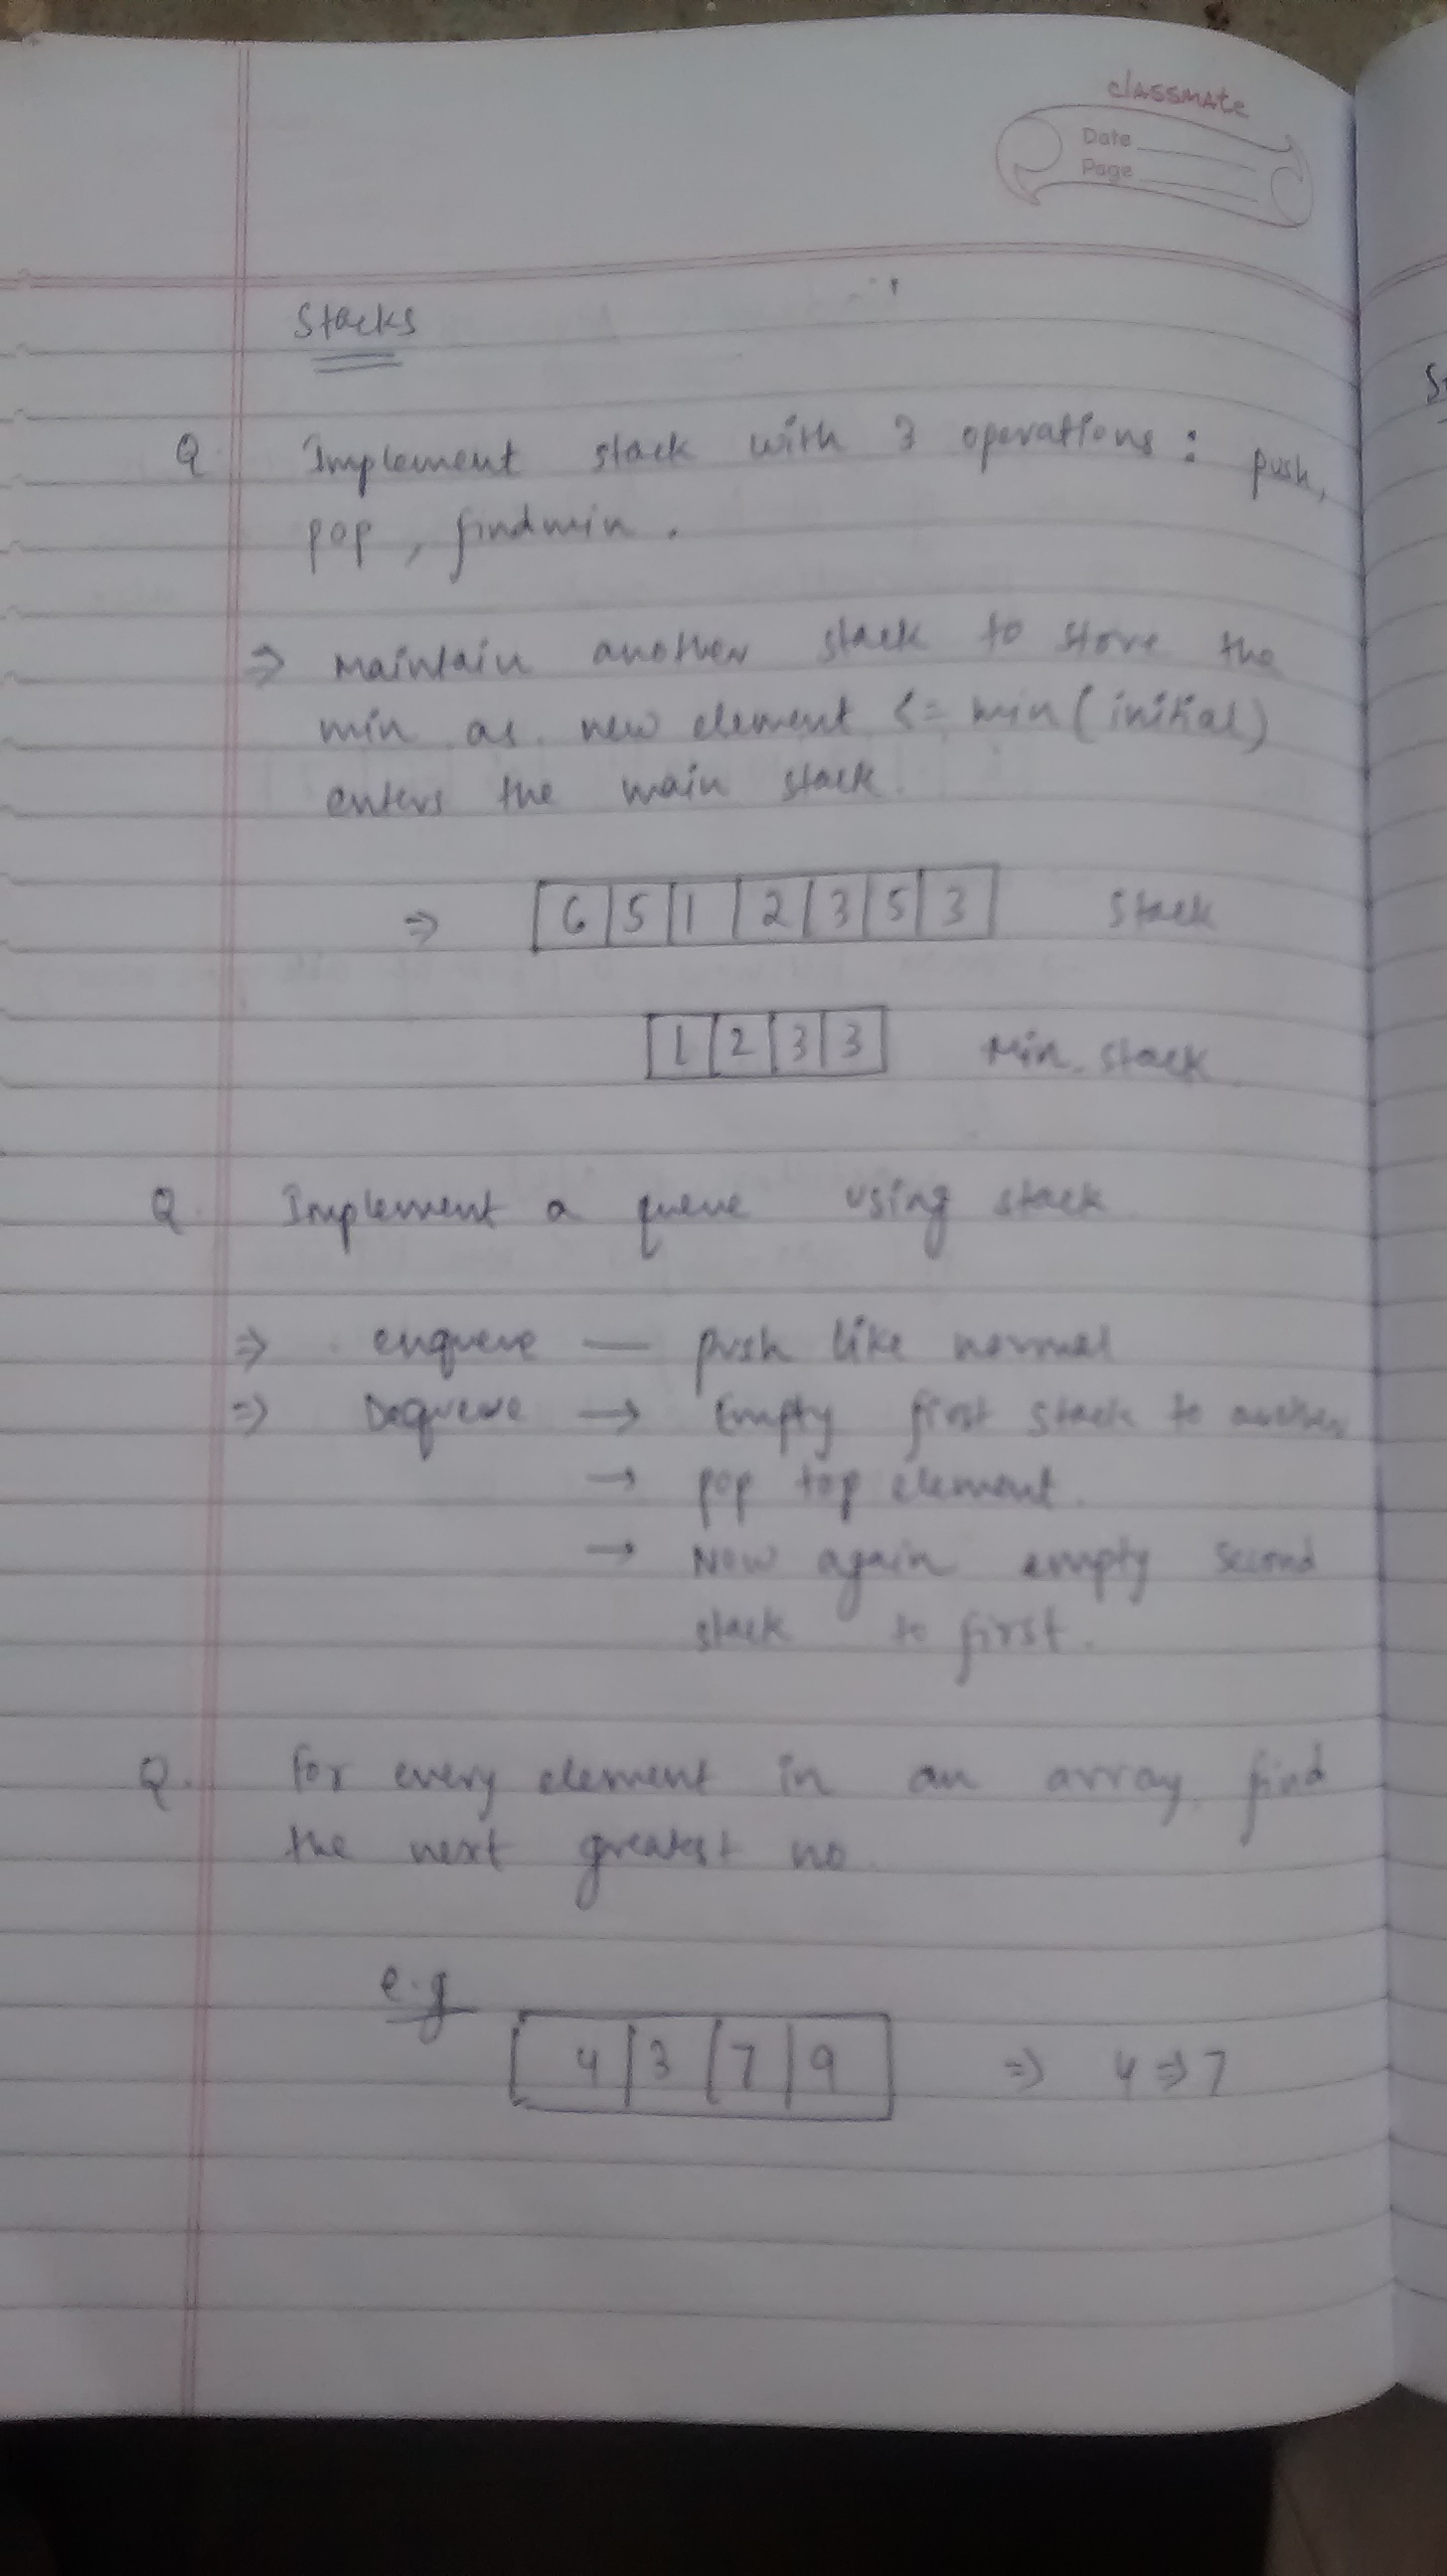 classmate
Date
Page
Stacks
Q. Implement stack with 3 operations : push,
pop, findmin.
⇒ Maintain another stack to store the
min as new element <= min (initial)
enters the main stack.
⇒ 6 5 1 2 3 5 3 Stack
1 2 3 3 Min. stack
Q. Implement a queue using stack
⇒ enqueue — push like normal
⇒ Dequeue → Empty first stack to another
→ pop top element.
→ Now again empty second
stack to first.
Q. For every element in an array find
the next greatest no.
e.g
4 3 7 9 ⇒ 4 ⇒ 7